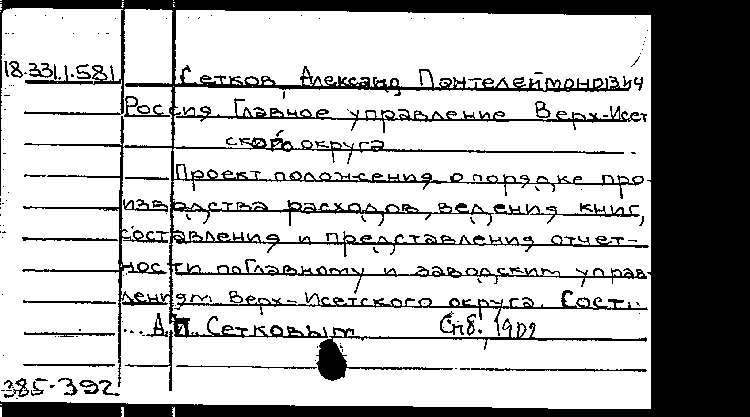 18.331.1.581
Сетков, Александ Пантелеймонович
Россия. Главное управление Верх-Исет
ского округа
Проект положения о порядке про-
изводства расходов, ведения книг,
составления и представления отчет-
ности по Главному и заводским управ-
лениям Верх-Исетского округа. Сост...
... А.П. Сетковым Спб. 1909
385-392